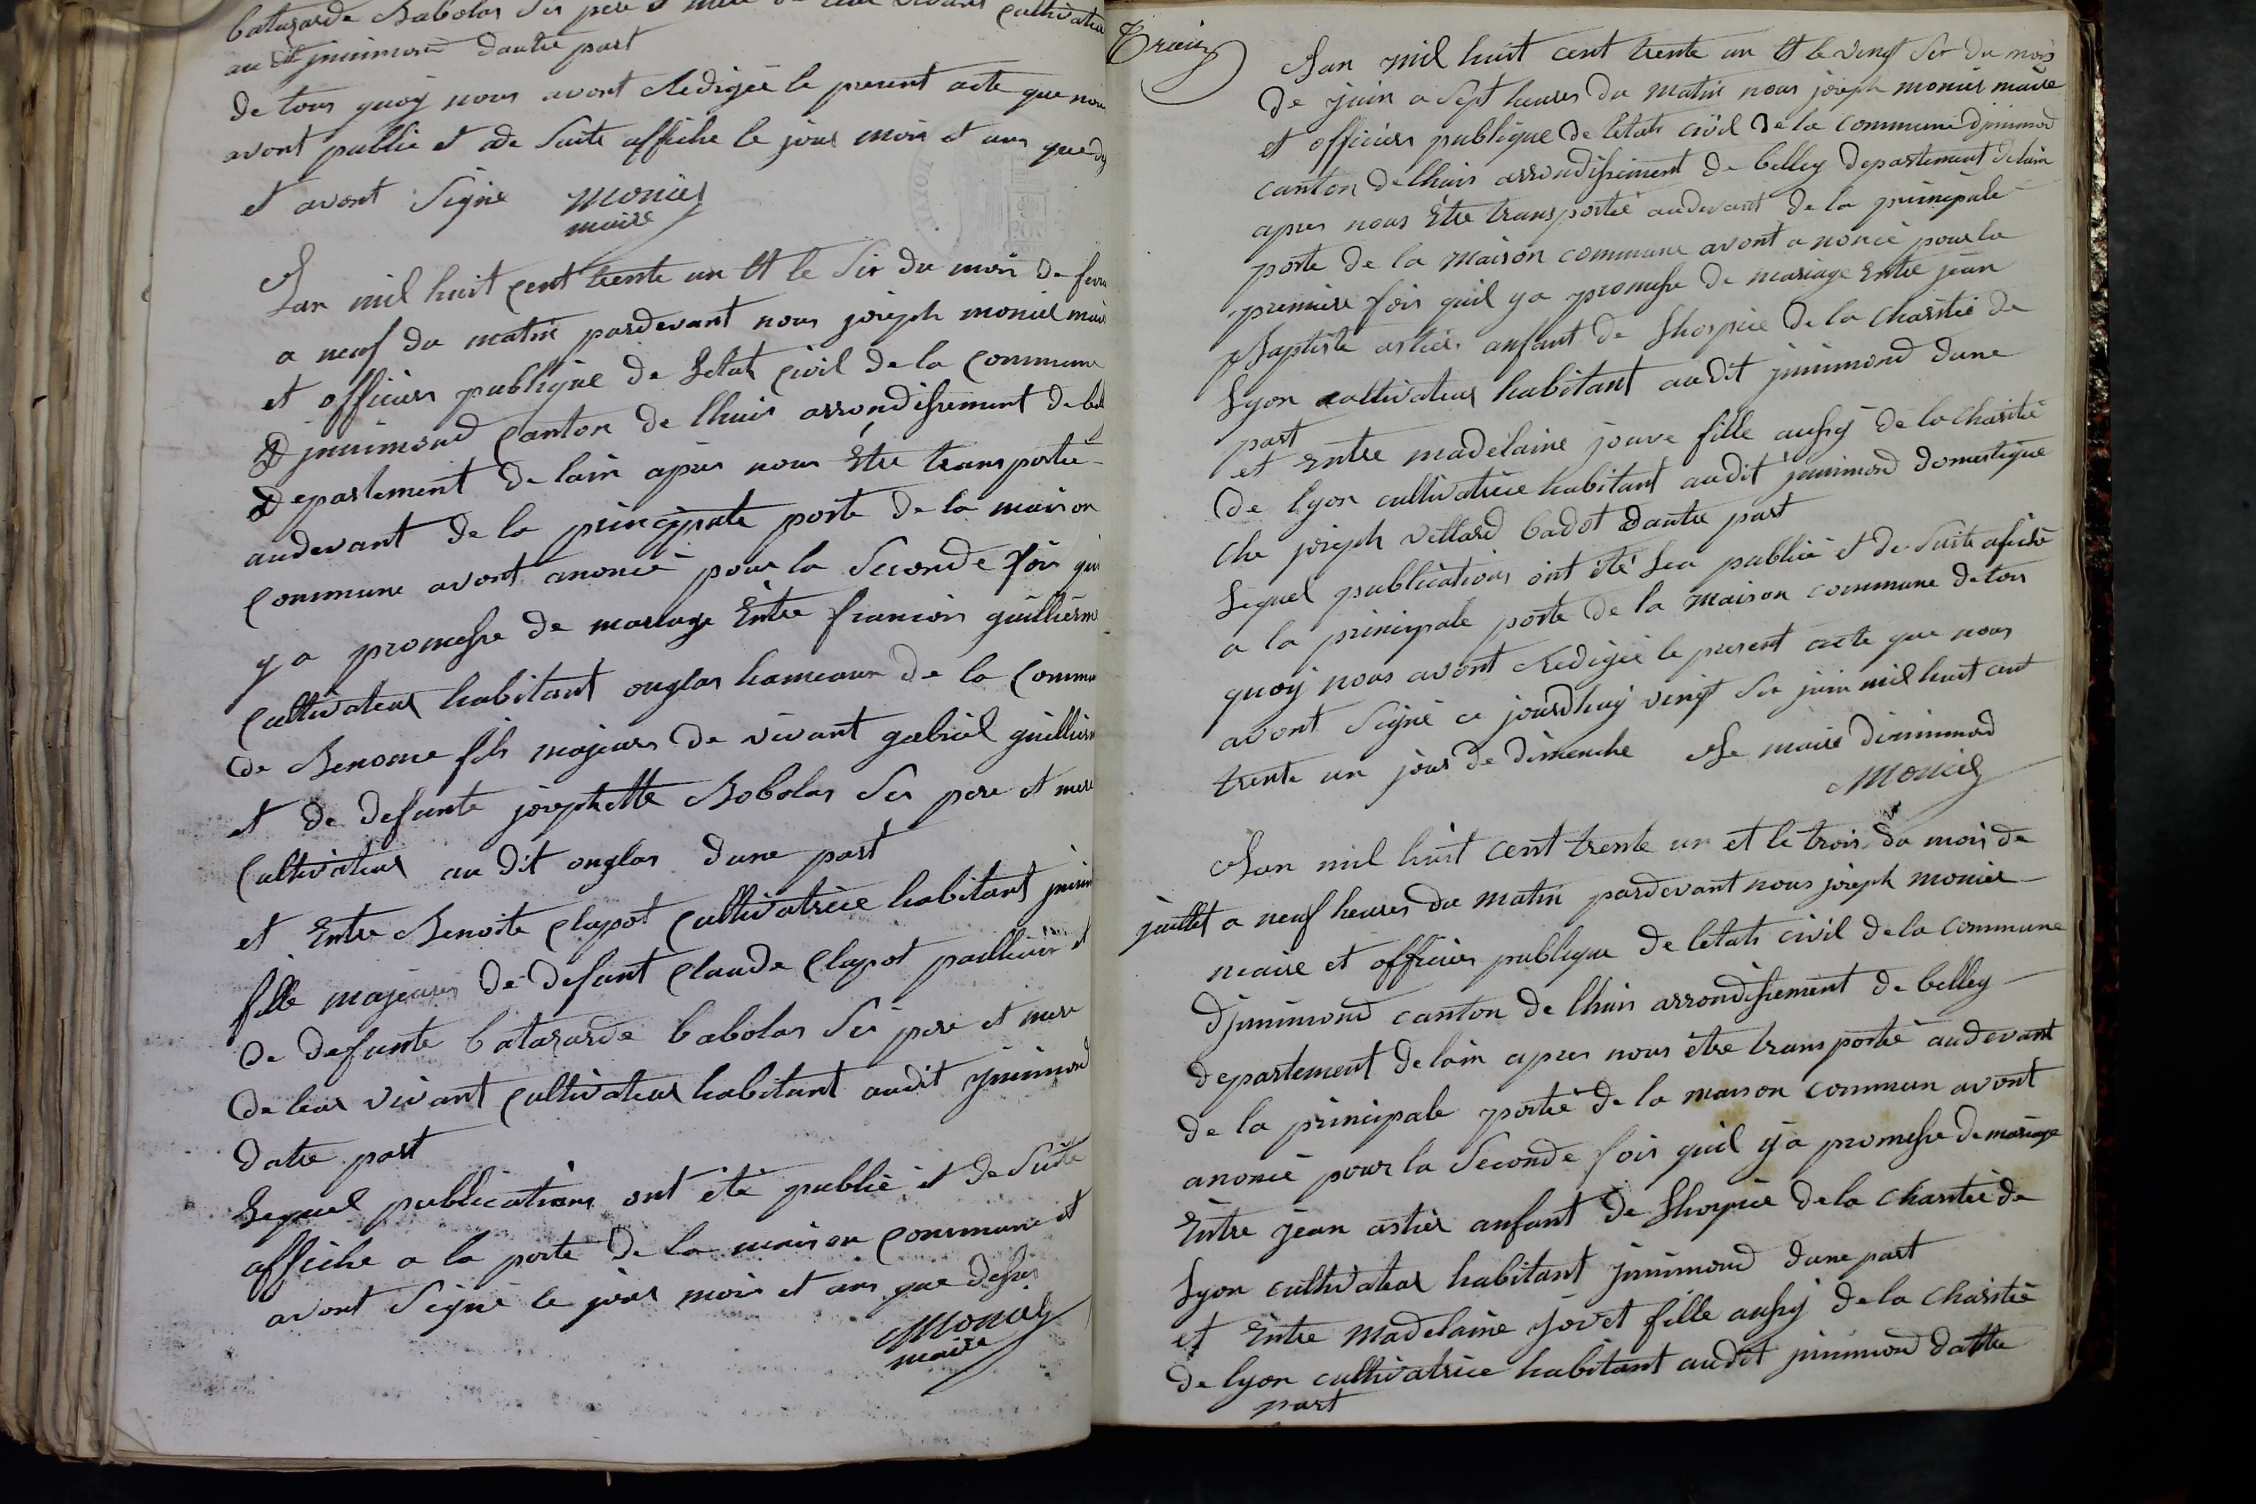 batazarde Babolas Ses pere et mere de leur vivant cultivateu
au dit jnnimond dautre part
de tous quoÿ nous avont Redigée le present acte que nous
avont publie et de Suite affiche le jour mois et ans que d
et avont Signé Monier
maire
Lan mil huit cent trente un et le Six du mois de fevr
a neuf du matin pardevant nous joseph monier mair
et officiers publique de Letat civil de la commune
djnnimond canton de lhuis arrondissement de bell
departement de lain apres nous Être transportée
audevant de la principale porte de la maison
commune avont anoncé pour la Seconde fois qui
y a promesse de mariage Entre francois guilliermo
cultivateur habitant onglas hameaux de la commu
de Benonce fils majeurs de vivant gabriel guillierm
et de defunte josephette Bobolas Ses pere et mere
cultivateur au dit onglas dune part
et Entre Benoite clapot cultivatrice habitant jnnim
fille majeures de defunt claude clapot et
de defunte batazarde babolas Ses pere et mere
de leur vivant cultivateur habitant audit jnnimond
datre part
Lequel publications ont été publié et de Suite
affiche a la porte de la maison commune et
avont Signé le jour mois et ans que dessus
Monier
maire
Lan mil huit cent trente un et le vingt Six du mois
de juin a Sept heures du matin nous joseph monier maire
et officiers publique de létats civil de la commune djnnimond
canton delhuis arrondissement de belley departement delain
apres nous Être transportée audevant de la principale
porte de la maison commune avont anoncé pour la
premiere fois quil ya promesse de mariage Entre jean
Baptiste astier anfant de Lhospice de la charitée de
Lyon cultivateur habitant audit jnnimond dune
part
et Entre madelaine jouve fille aussÿ de la charité
de lyon cultivatrice habitant audit jnnimond domestique
che joseph Villard badot dautre part
Lequel publications ont été Lu publié et de Suite afiché
a la principale porte de la maison commune de tous
quoÿ nous avont Redigée le present acte que nous
avont Signé ce jourdhuÿ vingt Six juin mil huit cent
trente un jour de dimenche Le maire dinnimond
Monier
Lan mil huit cent trente un et le trois du mois de
juillet a neuf heures du matin pardevant nous joseph monier
maire et officier publique de létats civil de la commune
djnnimond canton de lhuis arrondissement de belley
departement delain apres nous être transportée audevant
de la principale porte de la maison commun avont
anoncé pour la Seconde fois quil y a promesse de mariage
Entre jean astier anfant de Lhospice de la charitée de
Lyon cultivateur habitant jnnimond dune part
et Entre Madelaine jovet fille aussÿ de la charitée
de lyon cultivatrice habitant audit jnnimond dattre
part